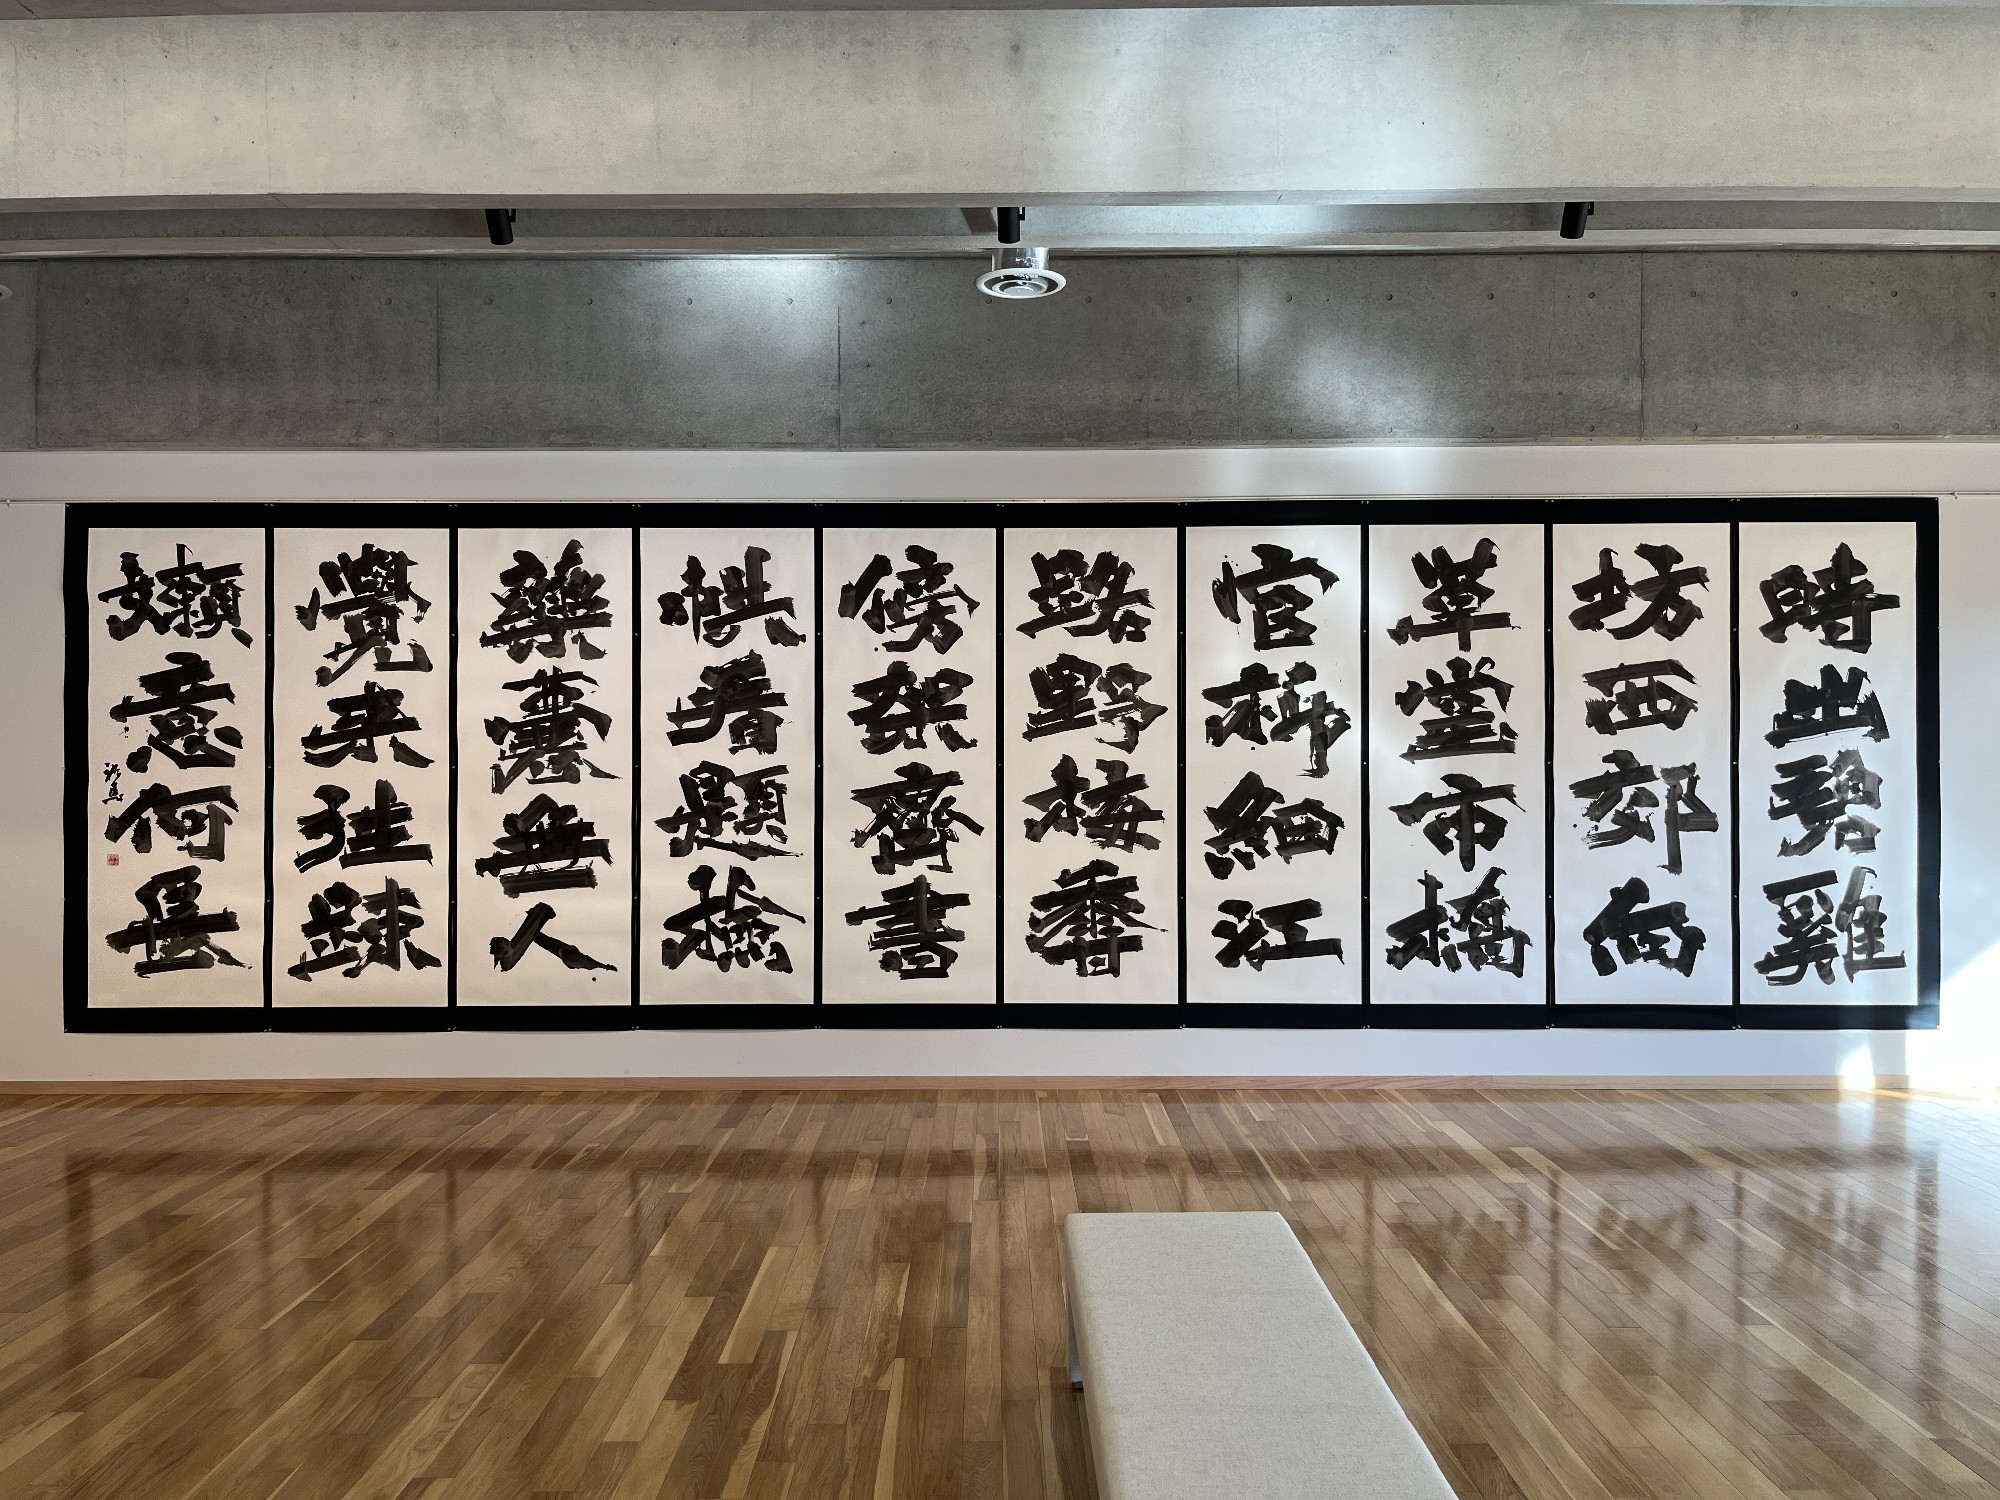 時出碧雞
坊西郊向
草堂市橋
官柳細江
路野梅香
傍架齊書
帙看題檢
藥囊無人
覺来往踈
嬾意何長